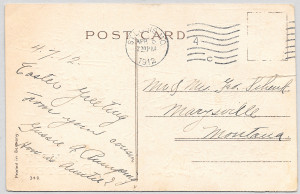 POST CARD
APR 6
1912
4
C
4/7/12
Easter Greeting
From your cousin
Grace A
How is Auntie?
Mr & Mrs Geo. Schenk
Marysville
Montana
Printed in Germany